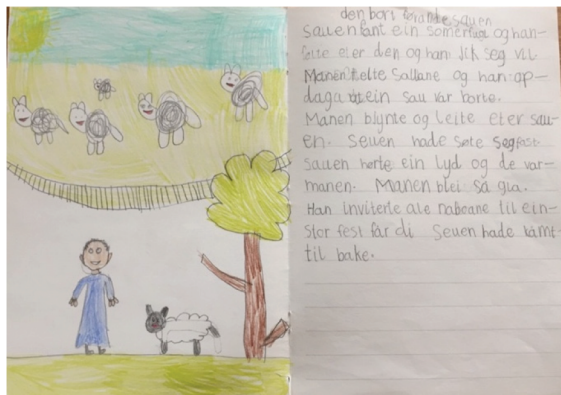 den bort sauen
Sauen fant ein somerfugl og han-
følte eter den og han jik seg vil
Manen telte sallane og han op-
daga ein sau var borte.
Manen blynte og leite eter sau-
en. Seuen hade sete seg fast
sauen hørte ein lyd og de var-
manen. Manen blei så gla.
Han inviterte ale naboane til ein-
stor fest får di Seuen hade kåmt-
til bake.